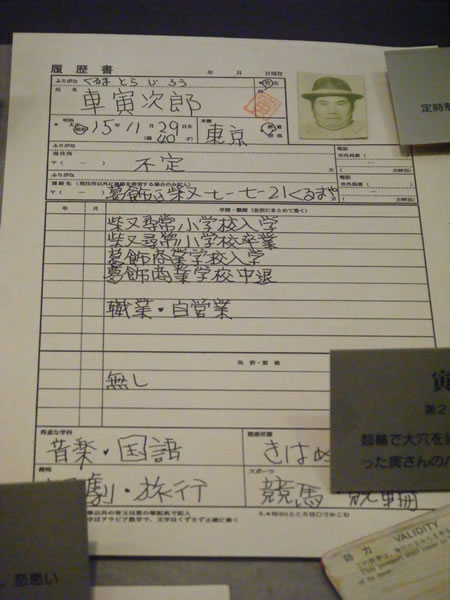 履歴書 年 月 日現在
ふりがな くるまとらじろう
氏名 車寅次郎
15年11月29日生 (満40才) 本籍 東京
ふりがな 電話
現住所 不定
〒( - ) 方
ふりがな 電話
連絡先(現住所以外に連絡を希望する場合のみ記入)
葛飾区柴又七-七-21くるまや
年 月 学歴・職歴(各別にまとめて書く)
柴又尋常小学校入学
柴又尋常小学校卒業
葛飾商業学校入学
葛飾商業学校中退
職業・自営業
免許・資格
無し
得意な学科 健康状態
音楽・国語 きはめ
趣味 スポーツ
劇・旅行 競馬・競輪
定時制
寅
第2
競輪で大穴を当
った寅さんの
、恋患い
効力 VALIDITY